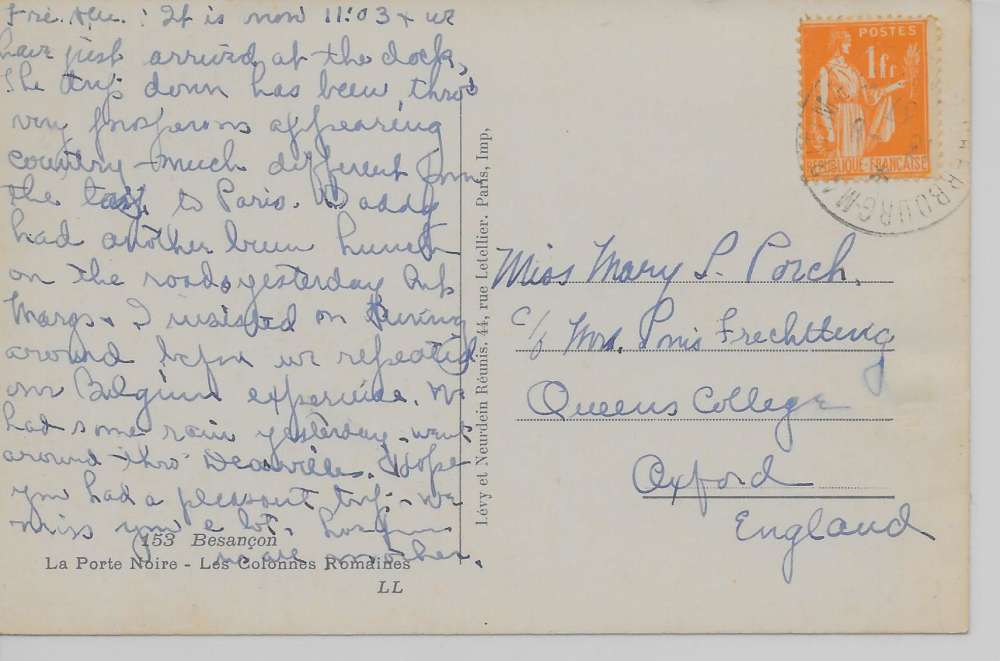 Fri. : It is now 11:03 + we
have just arrived at the dock,
The trip down has been thro'
very prosperous appearing
country - much different from
the to Paris. Daddy
had another hunch
on the roads yesterday but
Marg. + I insisted on turning
around before we repeated
our Belgium experience. We
had some rain yesterday - went
around thro' Deauville. Hope
you had a pleasant trip - we
miss you a lot.
Mother.
153 Besançon
La Porte Noire - Les Colonnes Romaines
LL
Lévy et Neurdein Réunis, 44, rue Letellier, Paris, Imp,
POSTES
1fr
RÉPUBLIQUE FRANÇAISE
Miss Mary L. Porch.
c/o Mrs. Frechtling
Queens College
Oxford
England